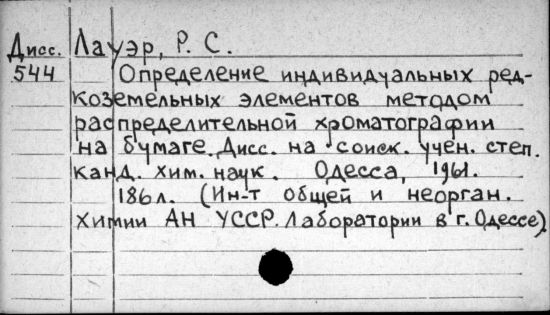 Дисс. Лауэр, Р. С.
544 Определение индивидуальных ред-
коземельных элементов методом
распределительной хроматографии
на бумаге. Дисс. на соиск. учен. степ.
канд. хим. наук. Одесса, 1961.
186 л. (Ин-т общей и неорган.
химии АН УССР. Лаборатории в г. Одессе)